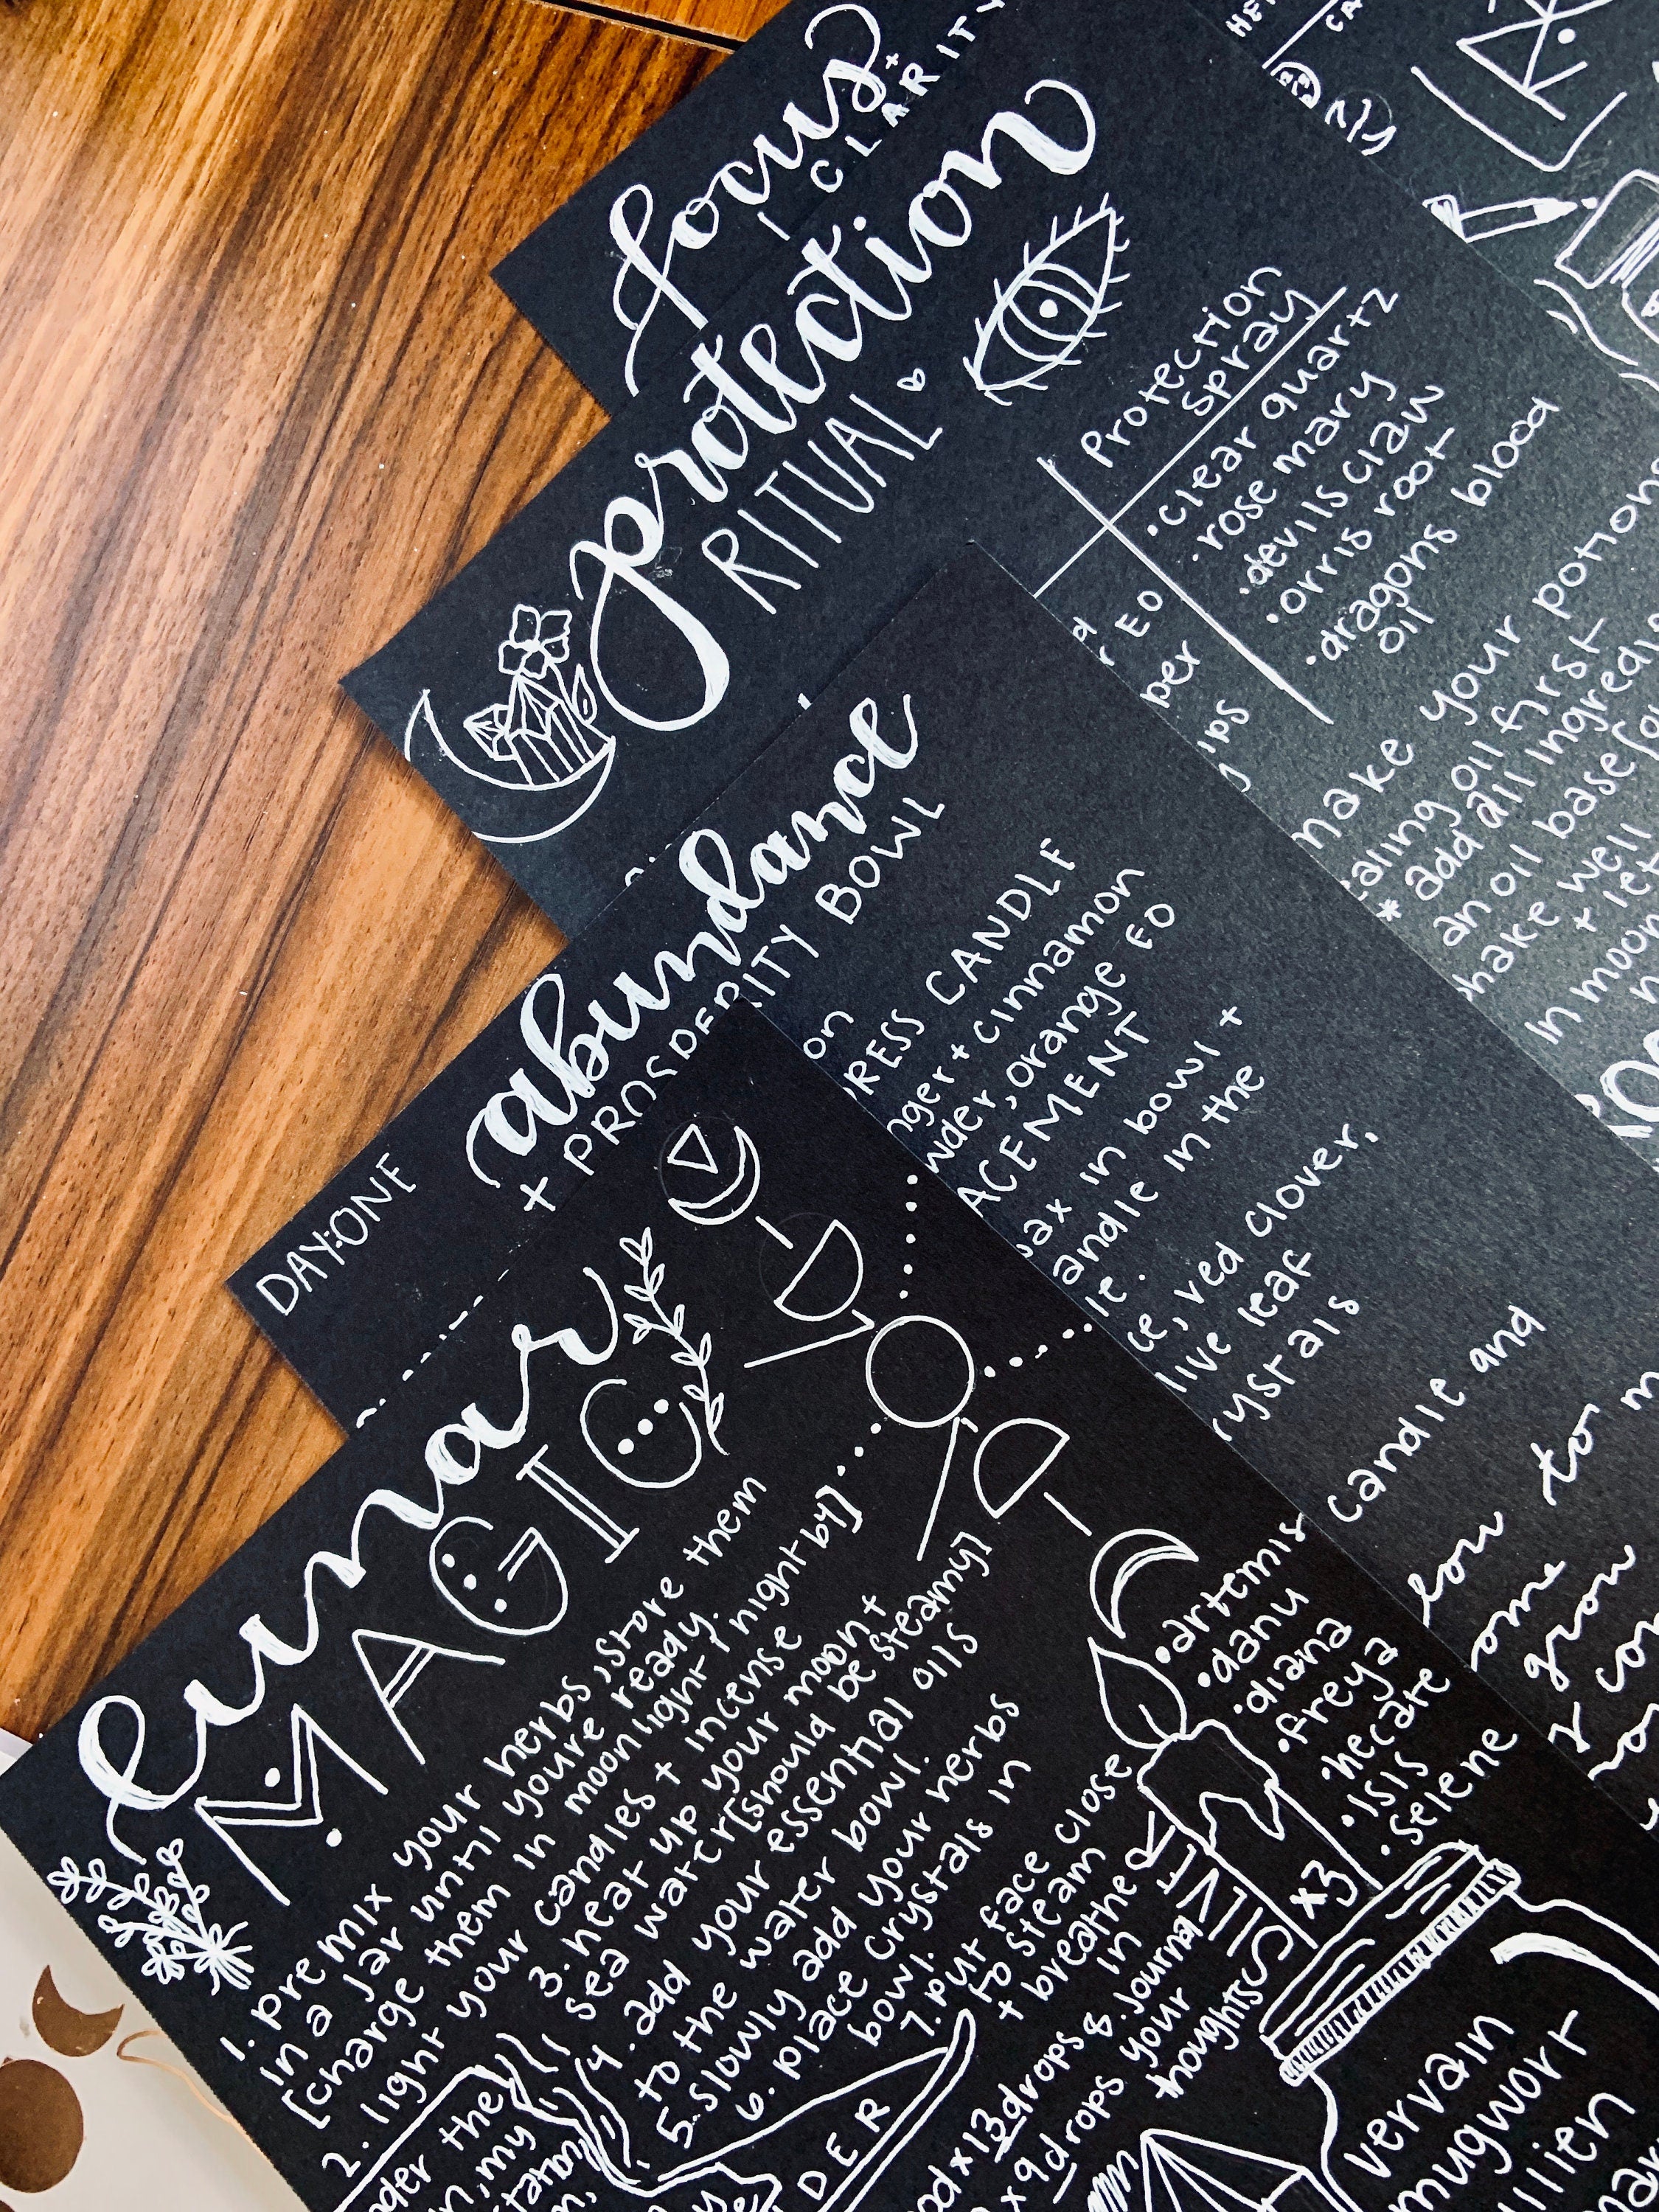 focus
+ CLARITY
protection
RITUAL
Protection
spray
•clear quartz
•rose mary
•devils claw
•orris root
•dragons blood
oil
EO
per
make your potions
oil first
* add all ingredi
an oil base fo
shake well
+ let
in moon
DAY:ONE
abundance
+ PROSPERITY BOWL
CANDLE
+ cinnamon
, orange EO
in bowl +
in the
red clover,
leaf
candle and
low to m
grow
lunar
MAGIC
1. pre mix your herbs, store them
in a jar until youre ready.
[charge them in moonlight 1 night by]
2. light your candles + incense
3. heat up your moon +
sea water [should be steamy]
4. add your essential oils
to the water bowl.
5. slowly add your herbs
6. place crystals in
bowl.
7. put face close
to steam
+ breathe
in
8. Journal
your
thoughts
SILVER
x3
•artemis
•danu
•diana
•freya
•hecate
•isis
•selene
x 13 drops
x 9 drops
the
my
DER
vervain
mugwort